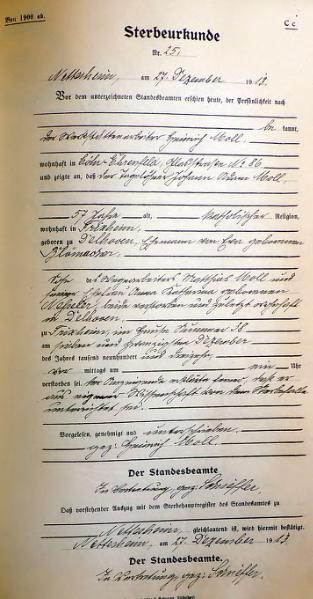 Von 1900 ab.
C c
Sterbeurkunde
Nr. 25.
Nettersheim, am 27. Dezember 1913.
Vor dem unterzeichneten Standesbeamten erschien heute, der Persönlichkeit nach
be kannt,
der Werkstättenarbeiter Heinrich Moll
wohnhaft in Cöln-Ehrenfeld, No 86
und zeigte an, daß der Tagelöhner Johann Adam Moll
57 Jahre alt, katholischer Religion,
wohnhaft in Frixheim,
geboren zu Delhoven, Ehemann von Eva geborenen
Sohn des Matthias Moll und
Anna Katharina geborenen
verstorben und zuletzt wohnhaft
in Delhoven
zu Frixheim, im Hause Nummer 38
am sieben und zwanzigsten Dezember
des Jahres tausend neunhundert und dreizehn
vor mittags um ein Uhr
verstorben sei. Der Anzeigende erklärte ferner, daß er
aus eigener Wissenschaft von dem Sterbefalle
unterrichtet sei.
Vorgelesen, genehmigt und unterschrieben
gez: Heinrich Moll.
Der Standesbeamte
In Vertretung, gez:
Daß vorstehender Auszug mit dem Sterbehauptregister des Standesamtes zu
Nettersheim gleichlautend ist, wird hiermit bestätigt.
Nettersheim, am 27. Dezember 1913.
Der Standesbeamte.
In Vertretung, gez: